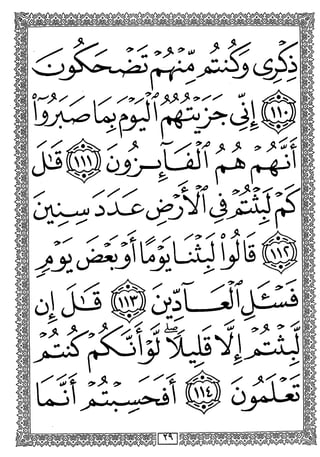 ذِكْرِي وَكُنتُم مِّنْهُمْ تَضْحَكُونَ
﴿١١٠﴾ إِنِّي جَزَيْتُهُمُ الْيَوْمَ بِمَا صَبَرُوٓا
أَنَّهُمْ هُمُ الْفَآئِزُونَ ﴿١١١﴾ قَالَ
كَمْ لَبِثْتُمْ فِي الْأَرْضِ عَدَدَ سِنِينَ
﴿١١٢﴾ قَالُوا لَبِثْنَا يَوْمًا أَوْ بَعْضَ يَوْمٍ
فَسْـَٔلِ الْعَآدِّينَ ﴿١١٣﴾ قَالَ إِن
لَّبِثْتُمْ إِلَّا قَلِيلًا ۖ لَّوْ أَنَّكُمْ كُنتُمْ
تَعْلَمُونَ ﴿١١٤﴾ أَفَحَسِبْتُمْ أَنَّمَا
٢٩